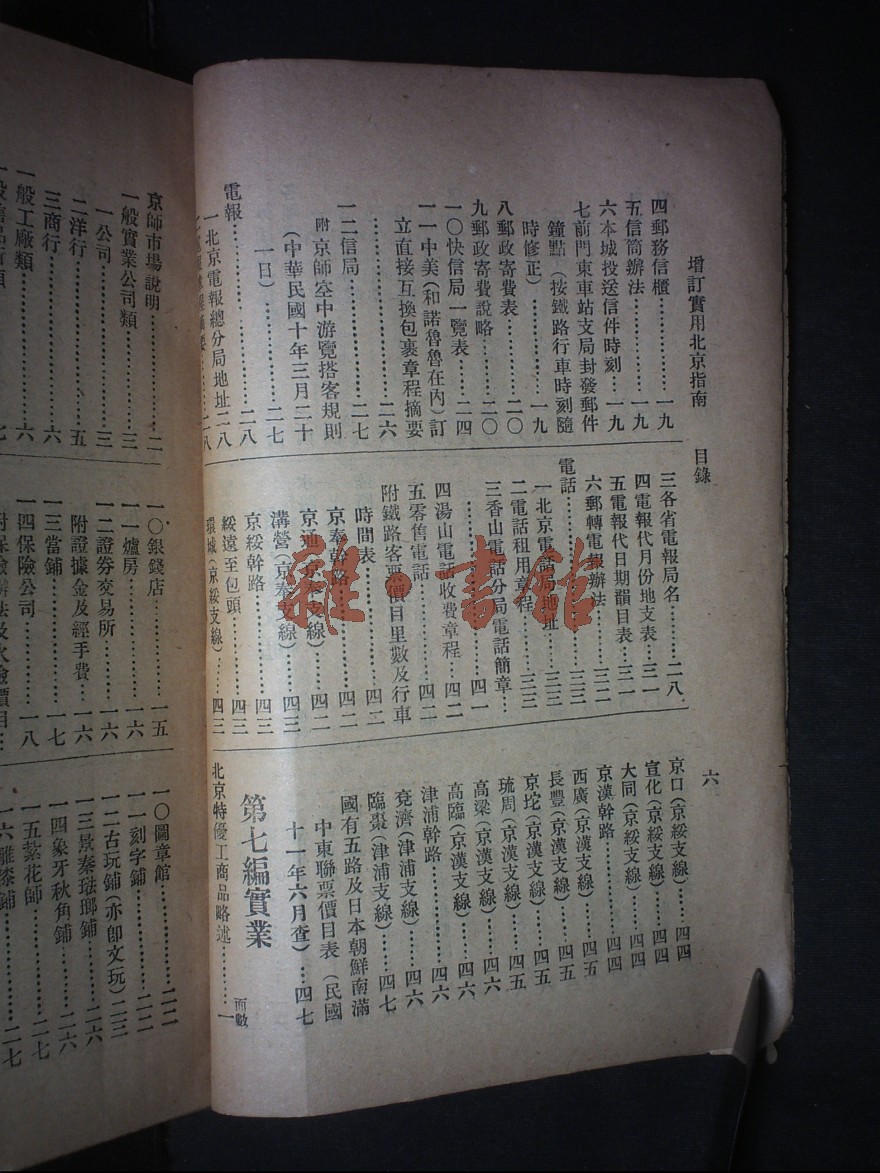 增訂實用北京指南 目錄 六
四郵務信櫃……一九
五信筒辦法……一九
六本城投送信件時刻……一九
七前門東車站支局封發郵件
鐘點(按鐵路行車時刻隨
時修正)……一九
八郵政寄費表……二〇
九郵政寄費說略……二〇
一〇快信局一覽表……二四
一一中美(和諾魯魯在內)訂
立直接互換包裹章程摘要
……二六
一二信局……二七
附京師空中游覽搭客規則
(中華民國十年三月二十
一日)……二七
電報……二八
一北京電報總分局地址二八
三各省電報局名……二八
四電報代月份地支表……三一
五電報代日期韻目表……三一
六郵轉電報辦法……三二
電話……三三
一北京電話局地址……三三
二電話租用章程……三三
三香山電話分局電話簡章…
……四一
四湯山電話收費章程……四二
五零售電話……四二
附鐵路客票價目里數及行車
時間表……四二
京奉幹路……四二
京通(京奉支線)……四二
溝營(京奉支線)……四三
京綏幹路……四三
綏遠至包頭……四三
環城(京綏支線)……四三
京口(京綏支線)……四四
宣化(京綏支線)……四四
大同(京綏支線)……四四
京漢幹路……四四
西廣(京漢支線)……四五
長豐(京漢支線)……四五
京坨(京漢支線)……四五
琉周(京漢支線)……四五
高梁(京漢支線)……四六
高臨(京漢支線)……四六
津浦幹路……四六
兗濟(津浦支線)……四六
臨棗(津浦支線)……四七
國有五路及日本朝鮮南滿
中東聯票價目表(民國
十一年六月查)……四七
第七編實業 面數
北京特優工商品略述……一
京師市場說明……二
一般實業公司類……三
一公司……三
二洋行……五
三商行……六
一般工廠類……六
一〇銀錢店……一五
一一爐房……一六
一二證券交易所……一六
附證據金及經手費……一六
一三當鋪……一七
一四保險公司……一八
一〇圖章館……二二
一一刻字鋪……二二
一二古玩鋪(亦卽文玩)二三
一三景泰琺瑯鋪……二六
一四象牙秋角鋪……二六
一五紮花師……二七
一六雕漆鋪……二七
雜·書館